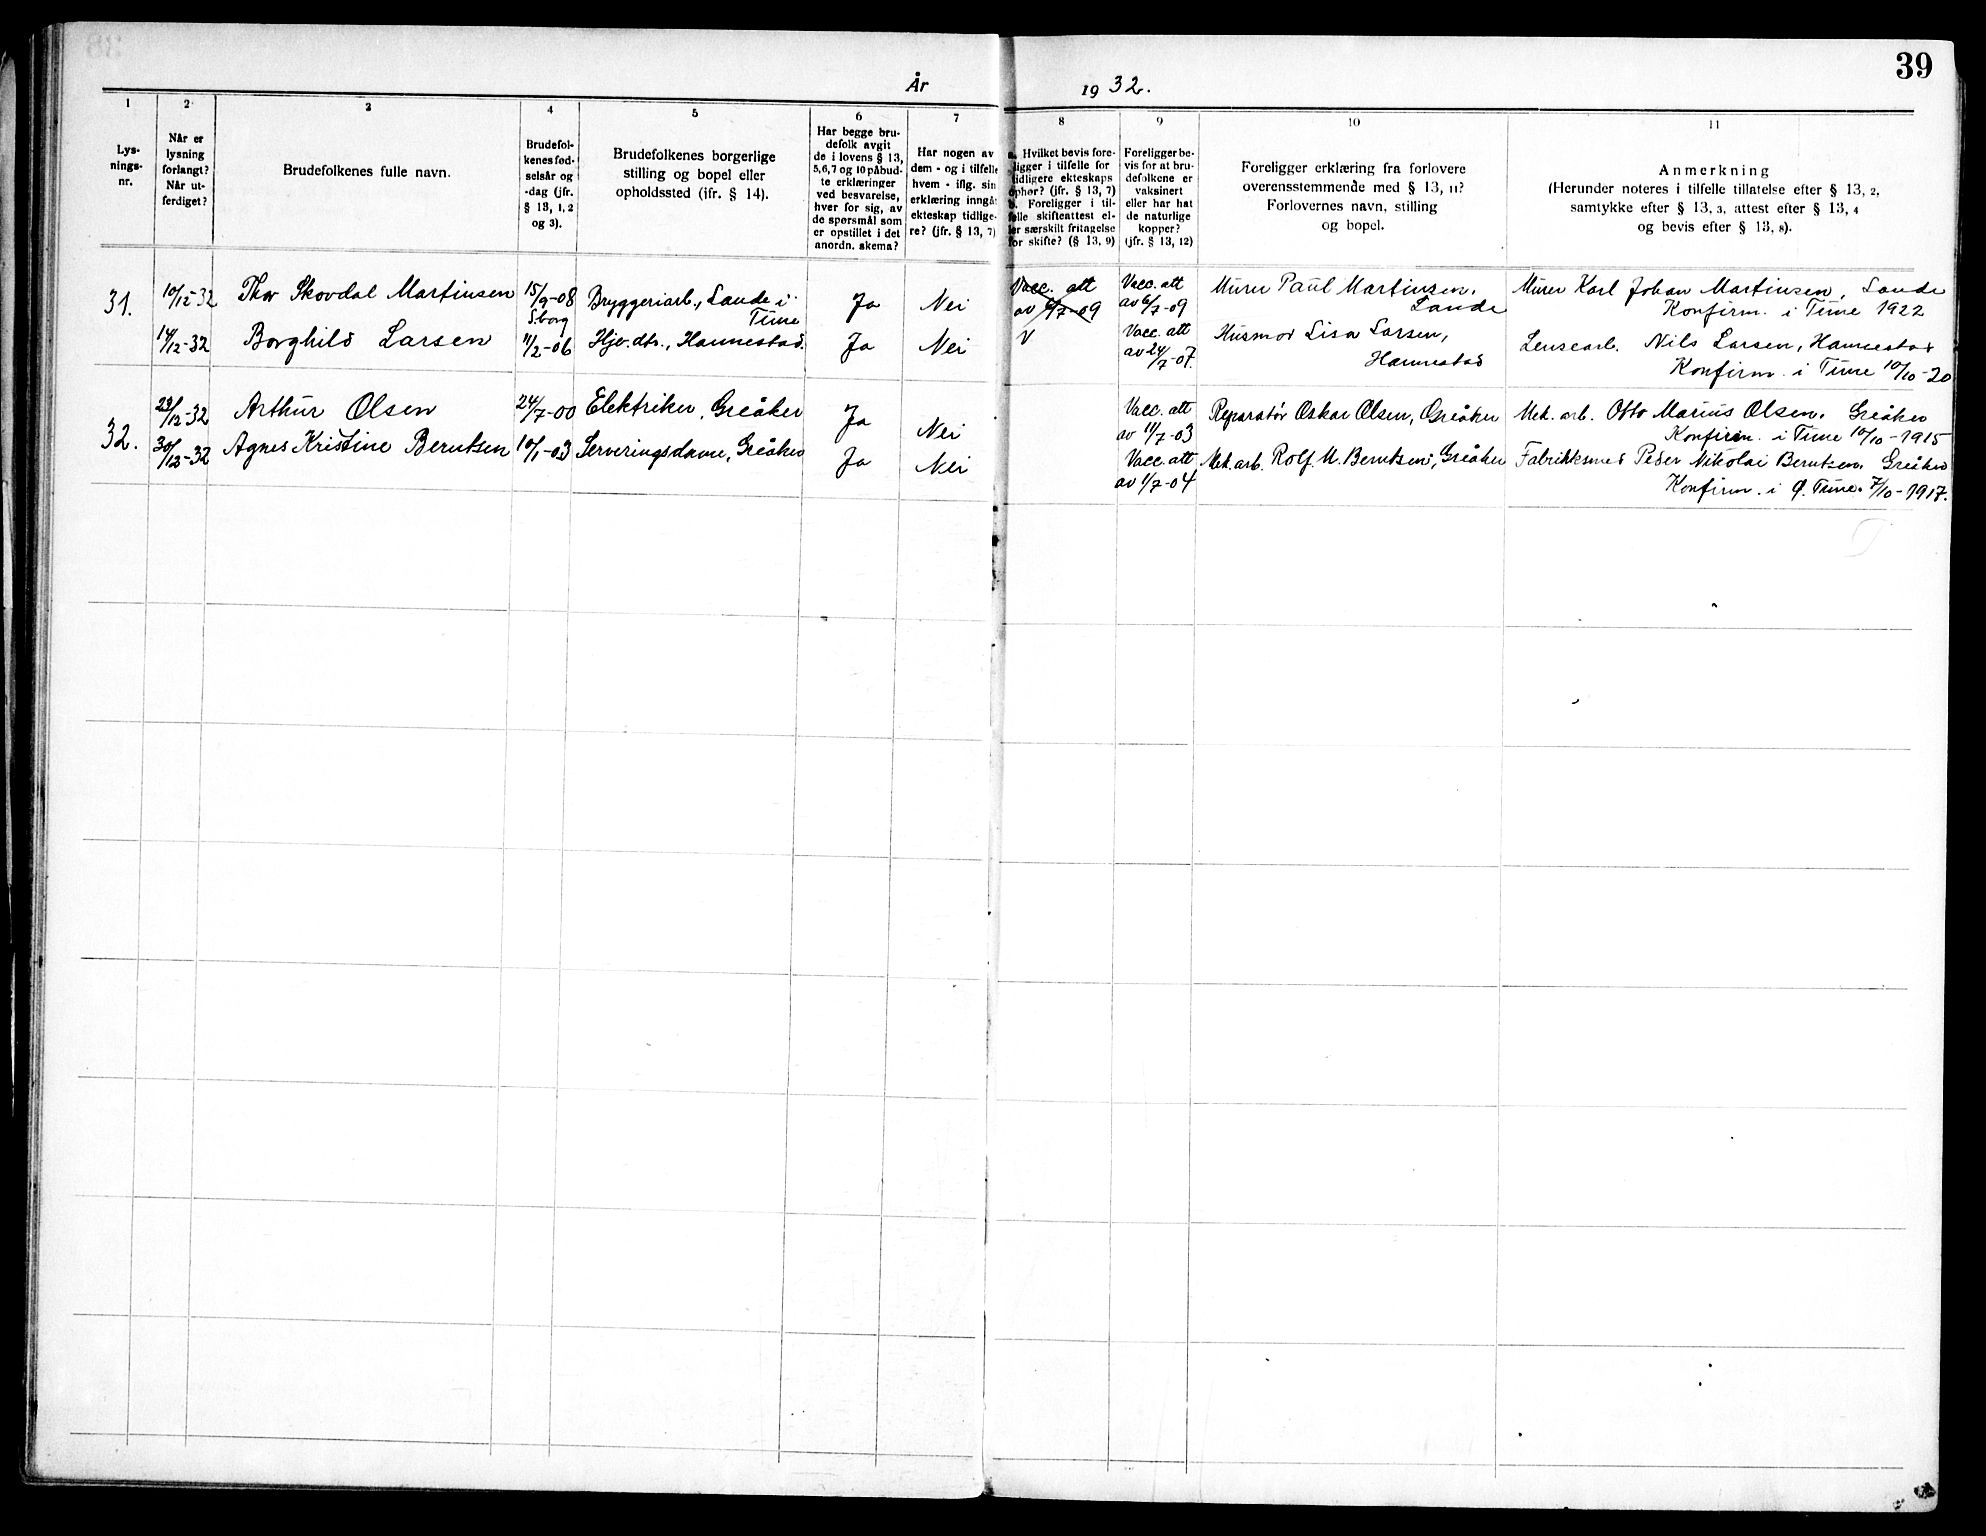 39
År 1932.
1
2
3
4
5
6
7
8
9
10
11
Lys-
nings-
nr.
Når er
lysning
forlangt?
Når ut-
ferdiget?
Brudefolkenes fulle navn.
Brudefol-
kenes fød-
selsår og
-dag (jfr.
§ 13, 1, 2
og 3).
Brudefolkenes borgerlige
stilling og bopel eller
opholdssted (jfr. § 14).
Har begge bru-
defolk avgit
de i lovens § 13,
5,6,7 og 10 påbud-
te erklæringer
ved besvarelse,
hver for sig, av
de spørsmål som
er opstillet i det
anordn. skema?
Har nogen av
dem - og i tilfelle
hvem - iflg. sin
erklæring inngåt
ekteskap tidlige-
re? (jfr. § 13, 7)
a. Hvilket bevis fore-
ligger i tilfelle for
tidligere ekteskaps
ophør? (jfr. § 13, 7)
b. Foreligger i til-
felle skifteattest el-
ler særskilt fritagelse
for skifte? (§ 13, 9)
Foreligger be-
vis for at bru-
defolkene er
vaksinert
eller har hat
de naturlige
kopper?
(jfr. § 13, 12)
Foreligger erklæring fra forlovere
overensstemmende med § 13, 11?
Forlovernes navn, stilling
og bopel.
Anmerkning
(Herunder noteres i tilfelle tillatelse efter § 13, 2,
samtykke efter § 13, 3, attest efter § 13, 4
og bevis efter § 13, 8).
31.
10/12-32
Thor Skovdal Martinsen
15/9-08
S.borg
Bryggeriarb., Lande i
Tune
Ja
Nei
Vacc. att
av 6/7-09
Vacc. att
av 6/7-09
Murer Paul Martinsen,
Lande
Murer Karl Johan Martinsen, Lande
Konfirm. i Tune 1922
14/12-32
Borghild Larsen
11/2-06
Hjv. dtr., Hannestad.
Ja
Nei
V
Vacc. att
av 24/7-07.
Husmor Lisa Larsen,
Hannestad
Lensearb. Nils Larsen, Hannestad
Konfirm. i Tune 10/10-20
32.
23/12-32
Arthur Olsen
24/7-00
Elektriker, Greåker
Ja
Nei
Vacc. att
av 11/7-03
Reparatør Oskar Olsen, Greåker
Mek. arb. Otto Marius Olsen. Greåker
Konfirm. i Tune 10/10-1915
30/12-32
Agnes Kristine Berntsen
10/1-03
Serveringsdame, Greåker
Ja
Nei
Vacc. att
av 1/7-04
Mek. arb. Rolf M. Berntsen, Greåker
Fabrikksmed Peder Nikolai Berntsen. Greåker
Konfirm. i Ø. Tune. 7/10-1917.